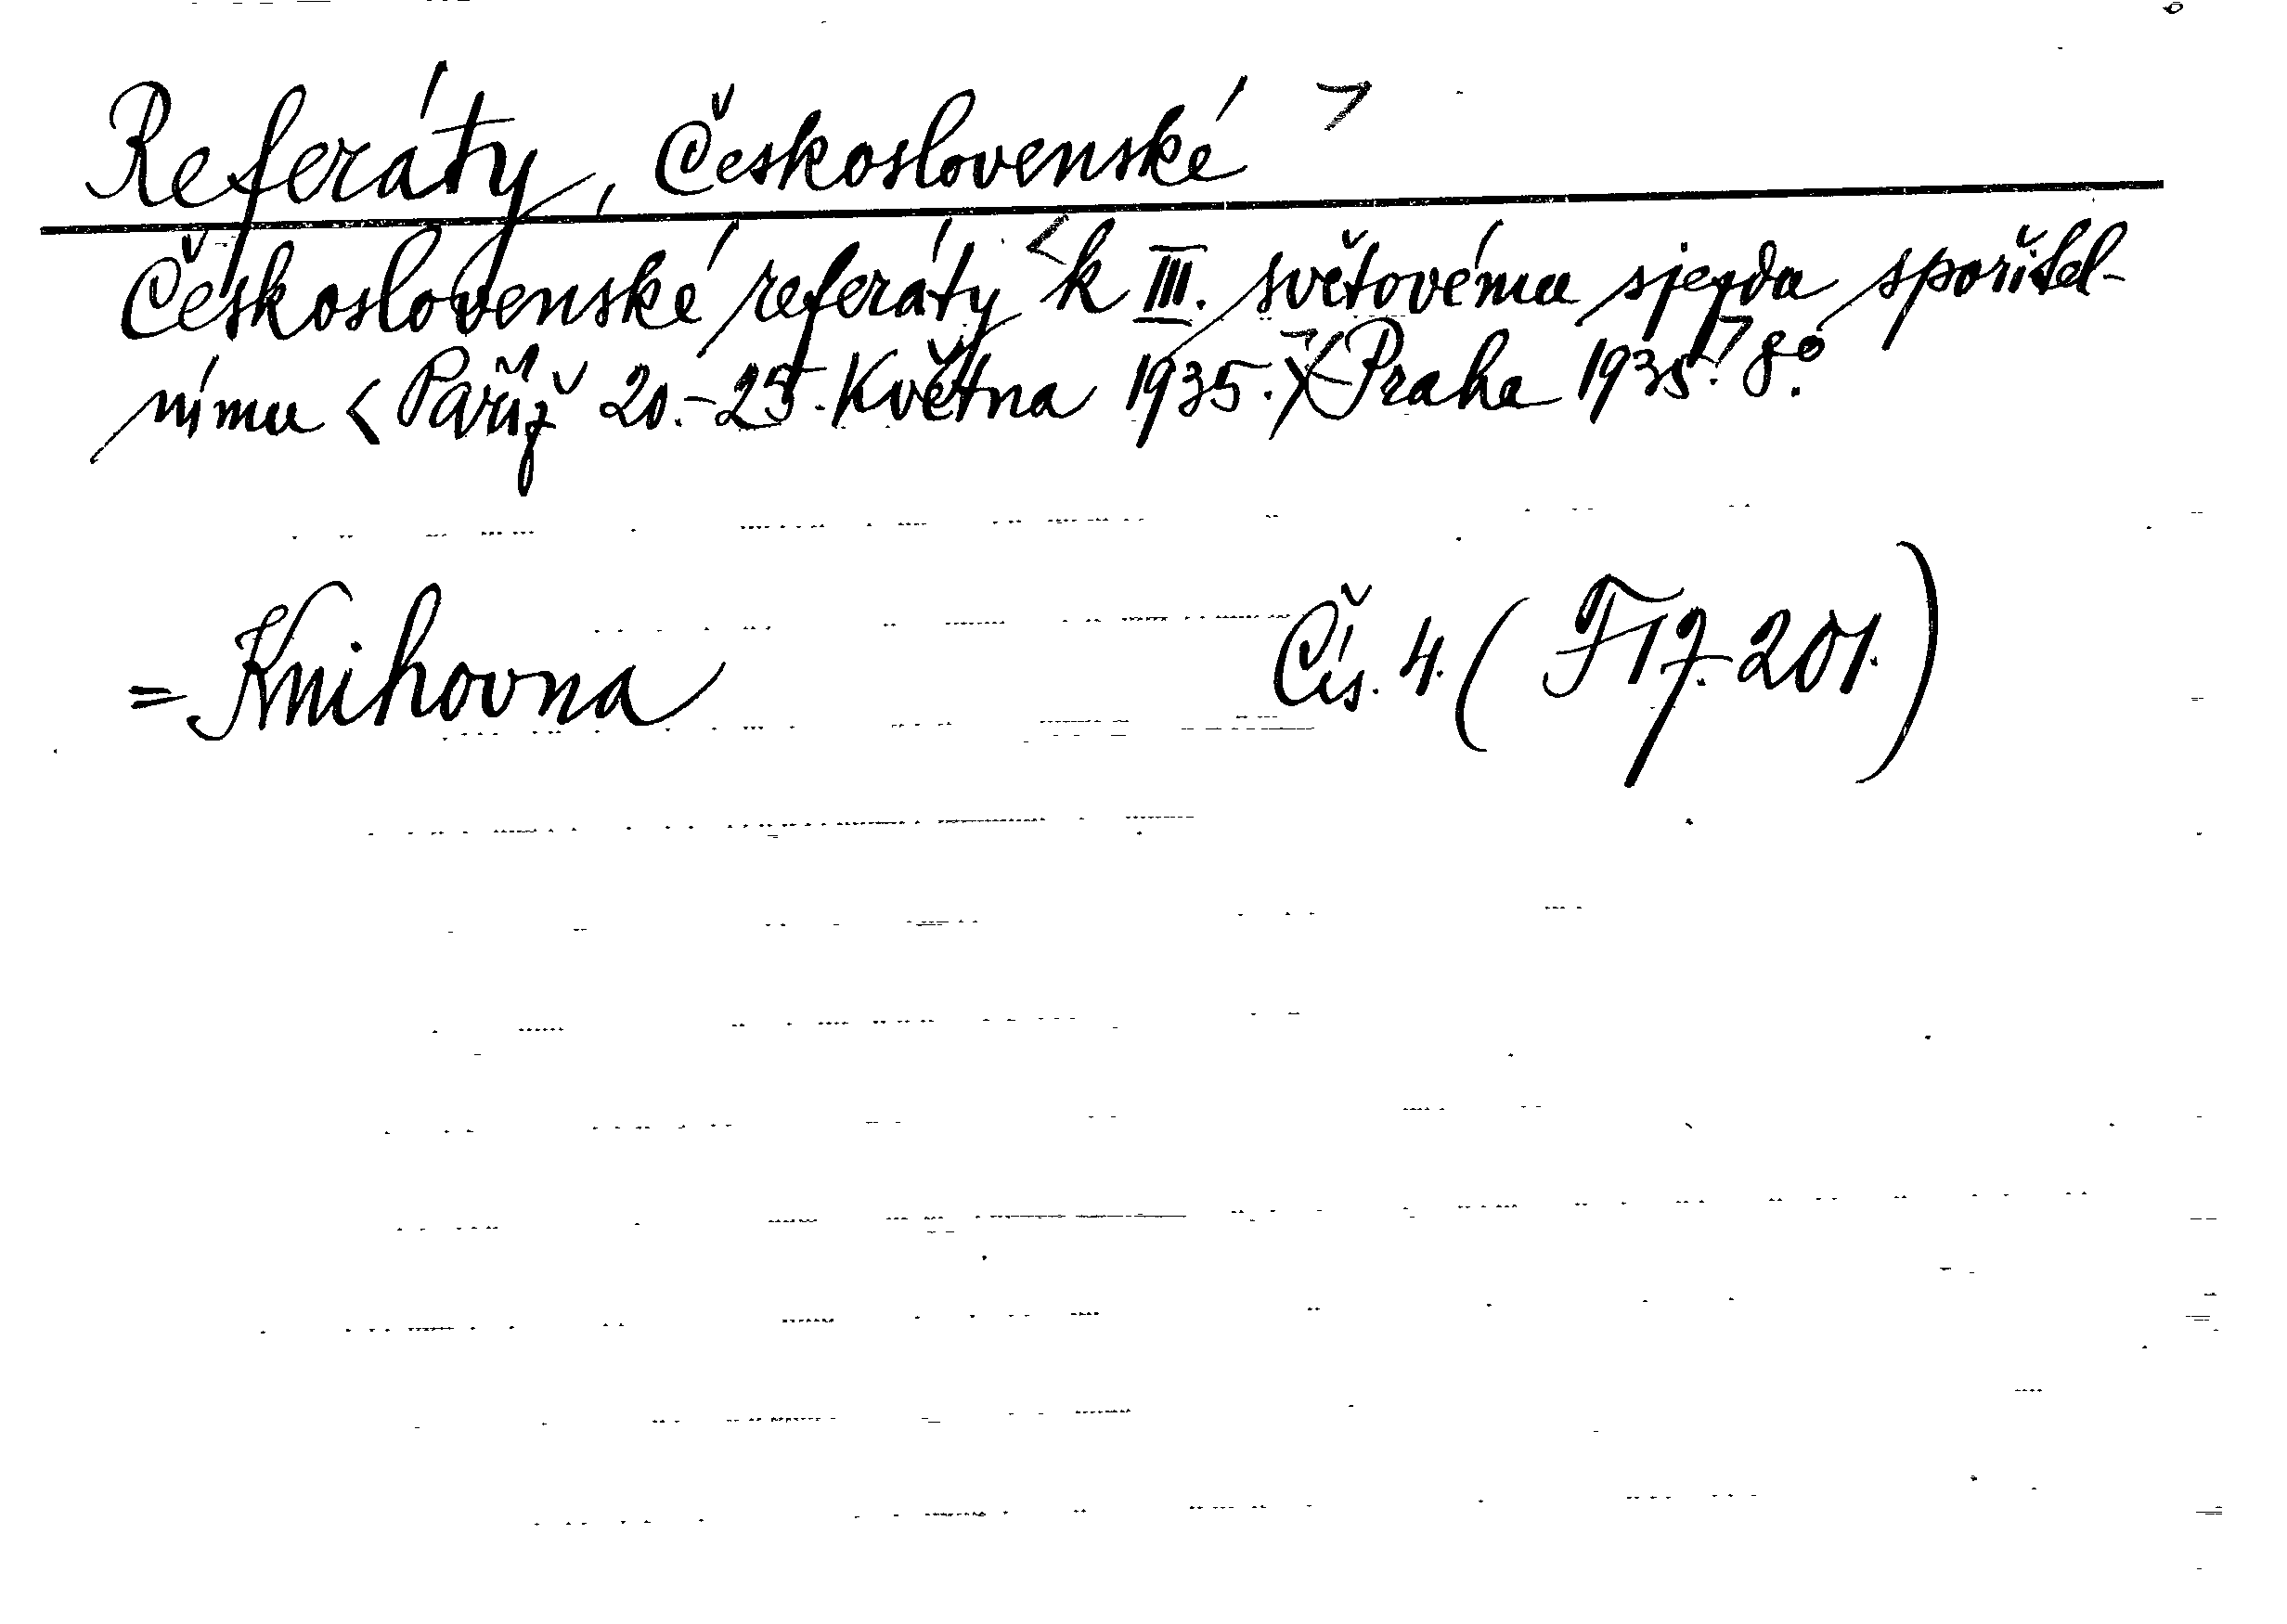 Referáty, Československé >
Československé referáty < k III. světovému sjezdu spořitel-
nímu < Paříž 20.-25. Května 1935. > < Praha 1935. > 8°.
= Knihovna Čís. 4. ( F 17. 201. )